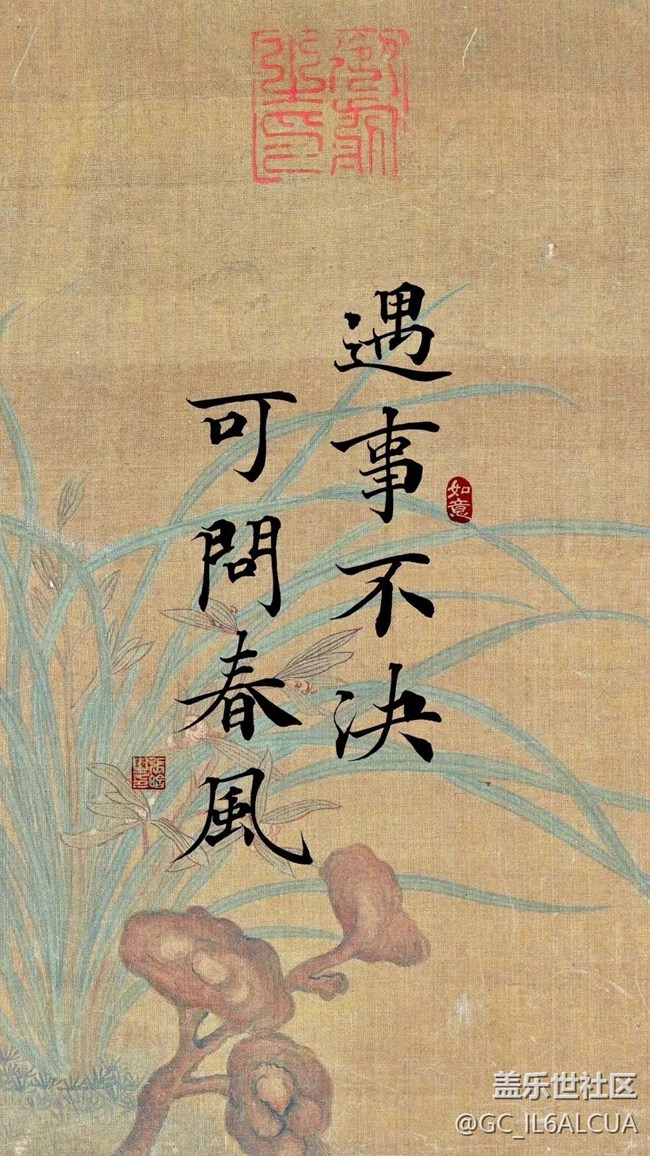 遇事不决
可問春風
如意
盖乐世社区
@GC_IL6ALCUA